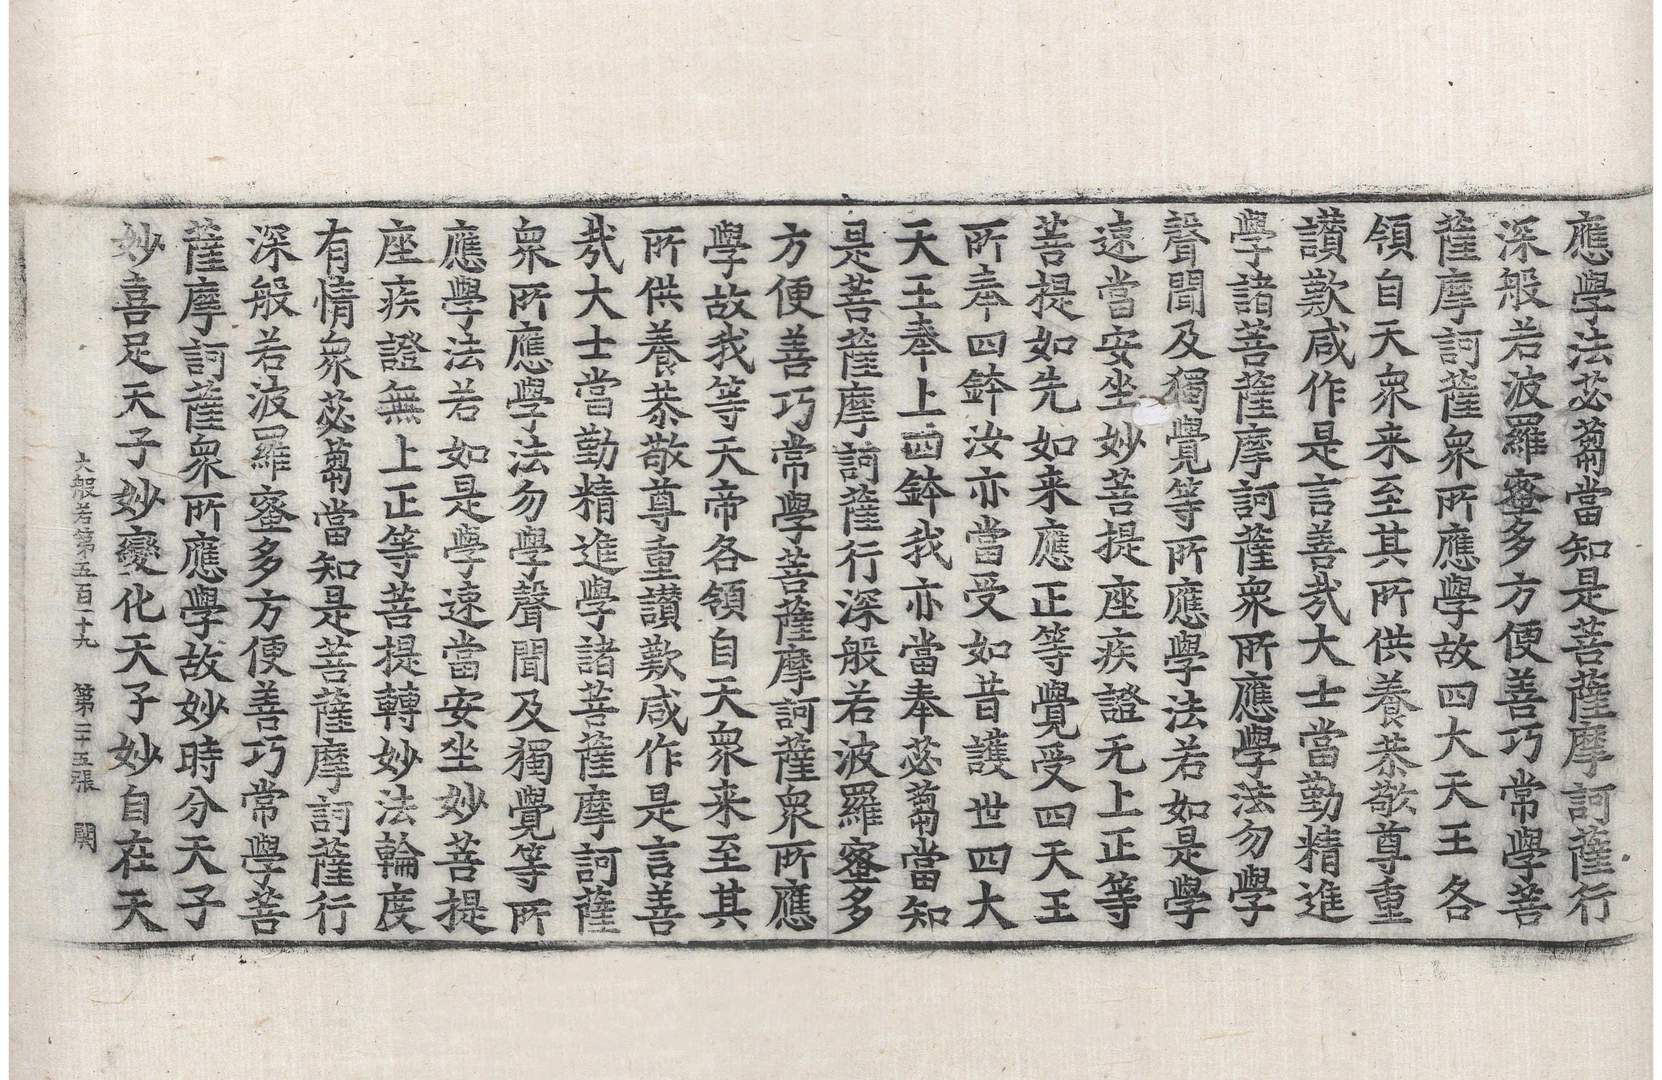 應學法苾蒭當知是菩薩摩訶薩行
深般若波羅蜜多方便善巧常學菩
薩摩訶薩衆所應學故四大天王各
領自天衆来至其所供養恭敬尊重
讃歎咸作是言善㦲大士當勤精進
學諸菩薩摩訶薩衆所應學法勿學
聲聞及獨覺等所應學法若如是學
速當安坐妙菩提座疾證无上正等
菩提如先如来應正等覺受四天王
所奉四鉢汝亦當受如昔護世四大
天王奉上四鉢我亦當奉苾蒭當知
是菩薩摩訶薩行深般若波羅蜜多
方便善巧常學菩薩摩訶薩衆所應
學故我等天帝各領自天衆来至其
所供養恭敬尊重讃歎咸作是言善
㦲大士當勤精進學諸菩薩摩訶薩
衆所應學法勿學聲聞及獨覺等所
應學法若如是學速當安坐妙菩提
座疾證無上正等菩提轉妙法輪度
有情衆苾蒭當知是菩薩摩訶薩行
深般若波羅蜜多方便善巧常學菩
薩摩訶薩衆所應學故妙時分天子
妙喜足天子妙變化天子妙自在天
大般若第五百二十九 第二十五張 闕